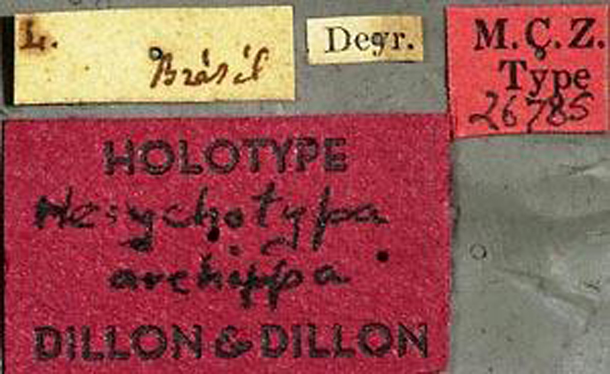 L.
Brasil
Degr.
M.C.Z.
Type
26785
HOLOTYPE
Hesychotypa
archippa
DILLON & DILLON